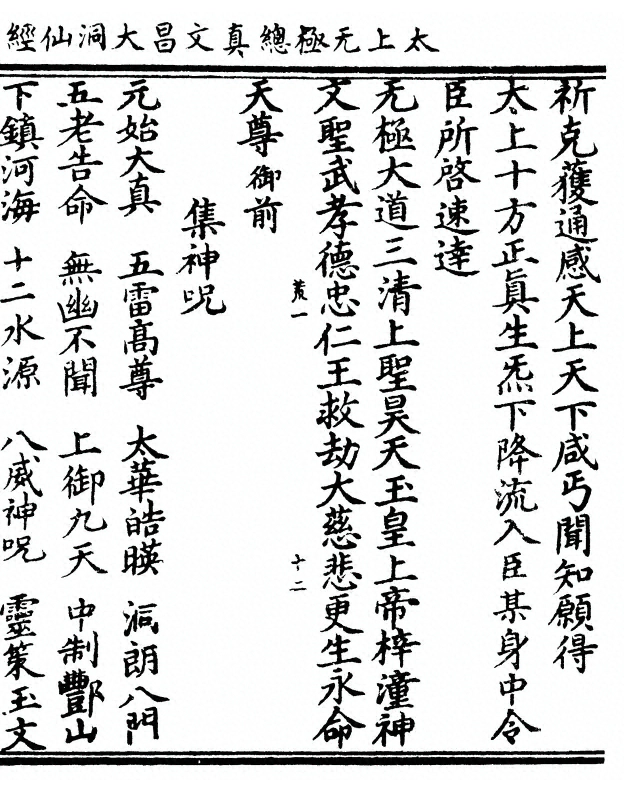 太上无極總真文昌大洞仙經
祈克獲通感天上天下咸丐聞知願得
太上十方正眞生炁下降流入臣某身中令
臣所啓速達
无極大道三清上聖昊天玉皇上帝梓潼神
文聖武孝德忠仁王救劫大慈悲更生永命
荒一
十二
天尊御前
集神呪
元始大真　五雷高尊　太華皓暎　洞朗八門
五老告命　無幽不聞　上御九天　中制酆山
下鎮河海　十二水源　八威神呪　靈策玉文